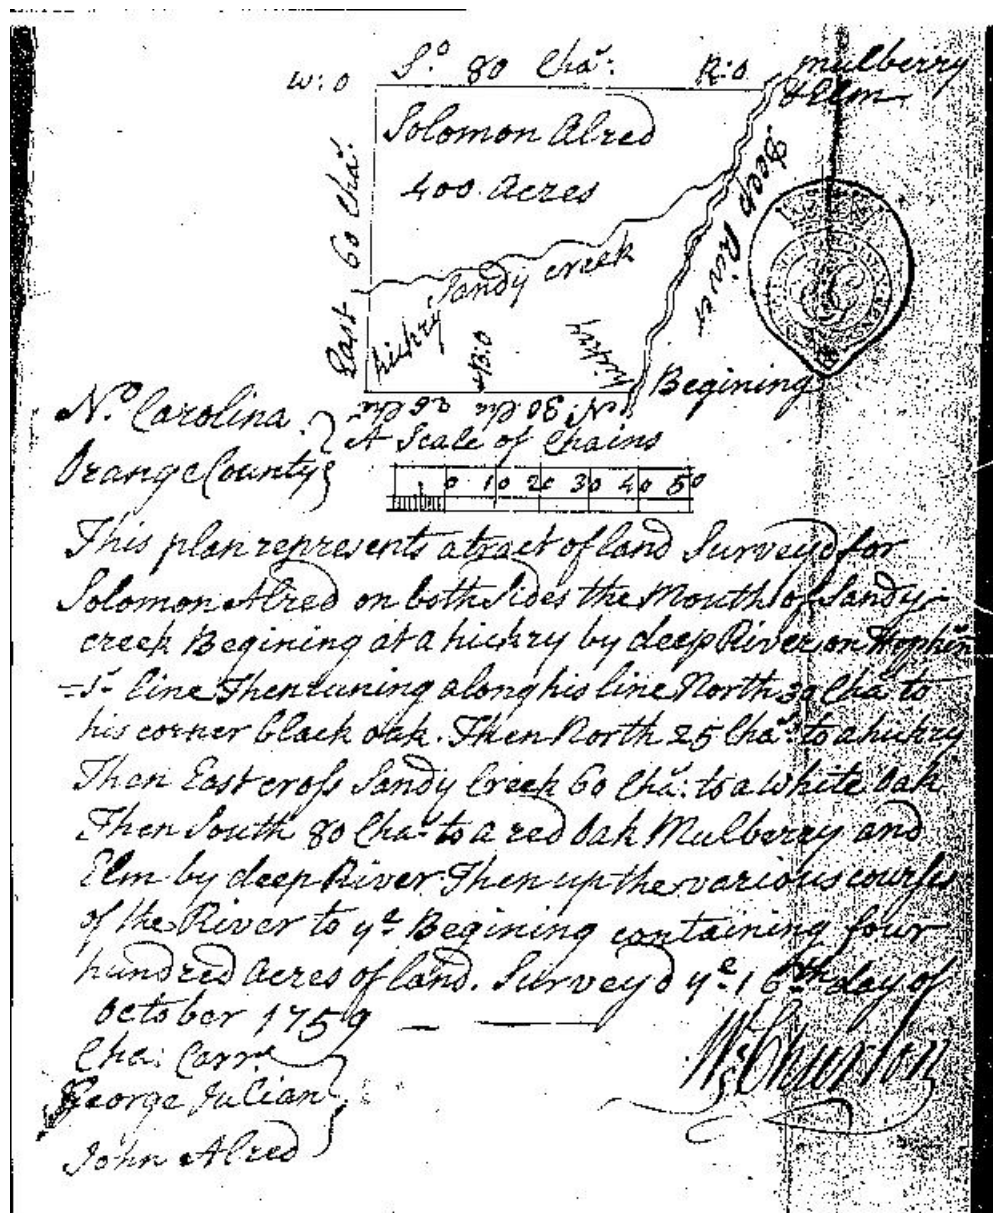 So. 80 Cha.:
W:O
R:O
mulberry
& Elm
Solomon Alred
400 acres
East 60 Cha.:
Deep River
Sandy creek
hickry
B:O
hickry
Begining
No. 30 Cha 25 Cha
No. Carolina
A Scale of Chains
Orange County
0 10 20 30 40 50
This plan represents a tract of land Survey'd for
Solomon Alred on both Sides the Mouth of Sandy
creek Begining at a hickry by deep River on Hopkin
=s. line Then runing along his line North 30 Cha. to
his corner black oak. Then North 25 Cha.s to a hickry
Then East cross Sandy Creek 60 Cha.: to a White Oak
Then South 80 Cha.s to a red Oak Mulberry and
Elm by deep River. Then up the various courses
of the River to ye Begining containing four
hundred acres of land. Survey'd ye. 16th day of
October 1759
Cha: Carrs.
George Julian
John Alred
Ws. Churton